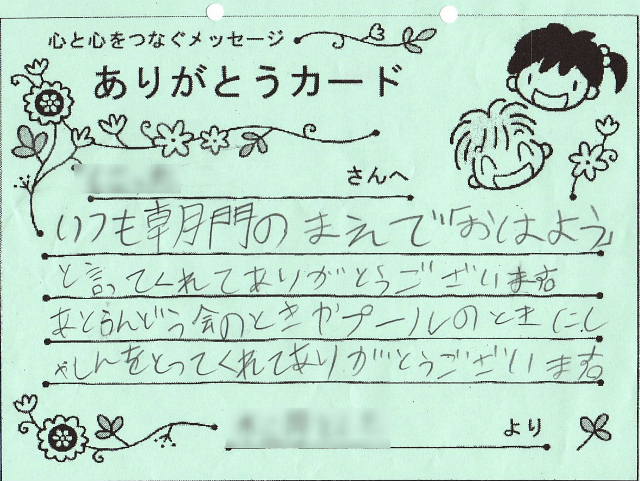 心と心をつなぐメッセージ
ありがとうカード
さんへ
いつも朝門のまえで「おはよう」
と言ってくれてありがとうございます
あとうんどう会のときやプールのときにし
ゃしんをとってくれてありがとうございます
より